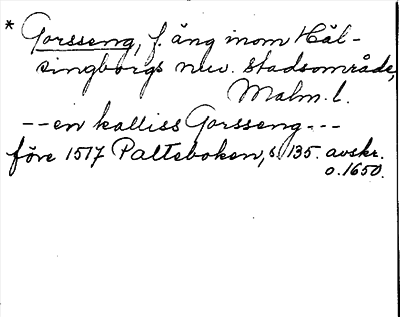 * Gorsseng, f. äng inom Häl-
singborgs nuv. stadsområde,
Malm. l.
-- en kalliss Gorsseng ---
före 1517 Palteboken, s. 135. avskr.
o. 1650.